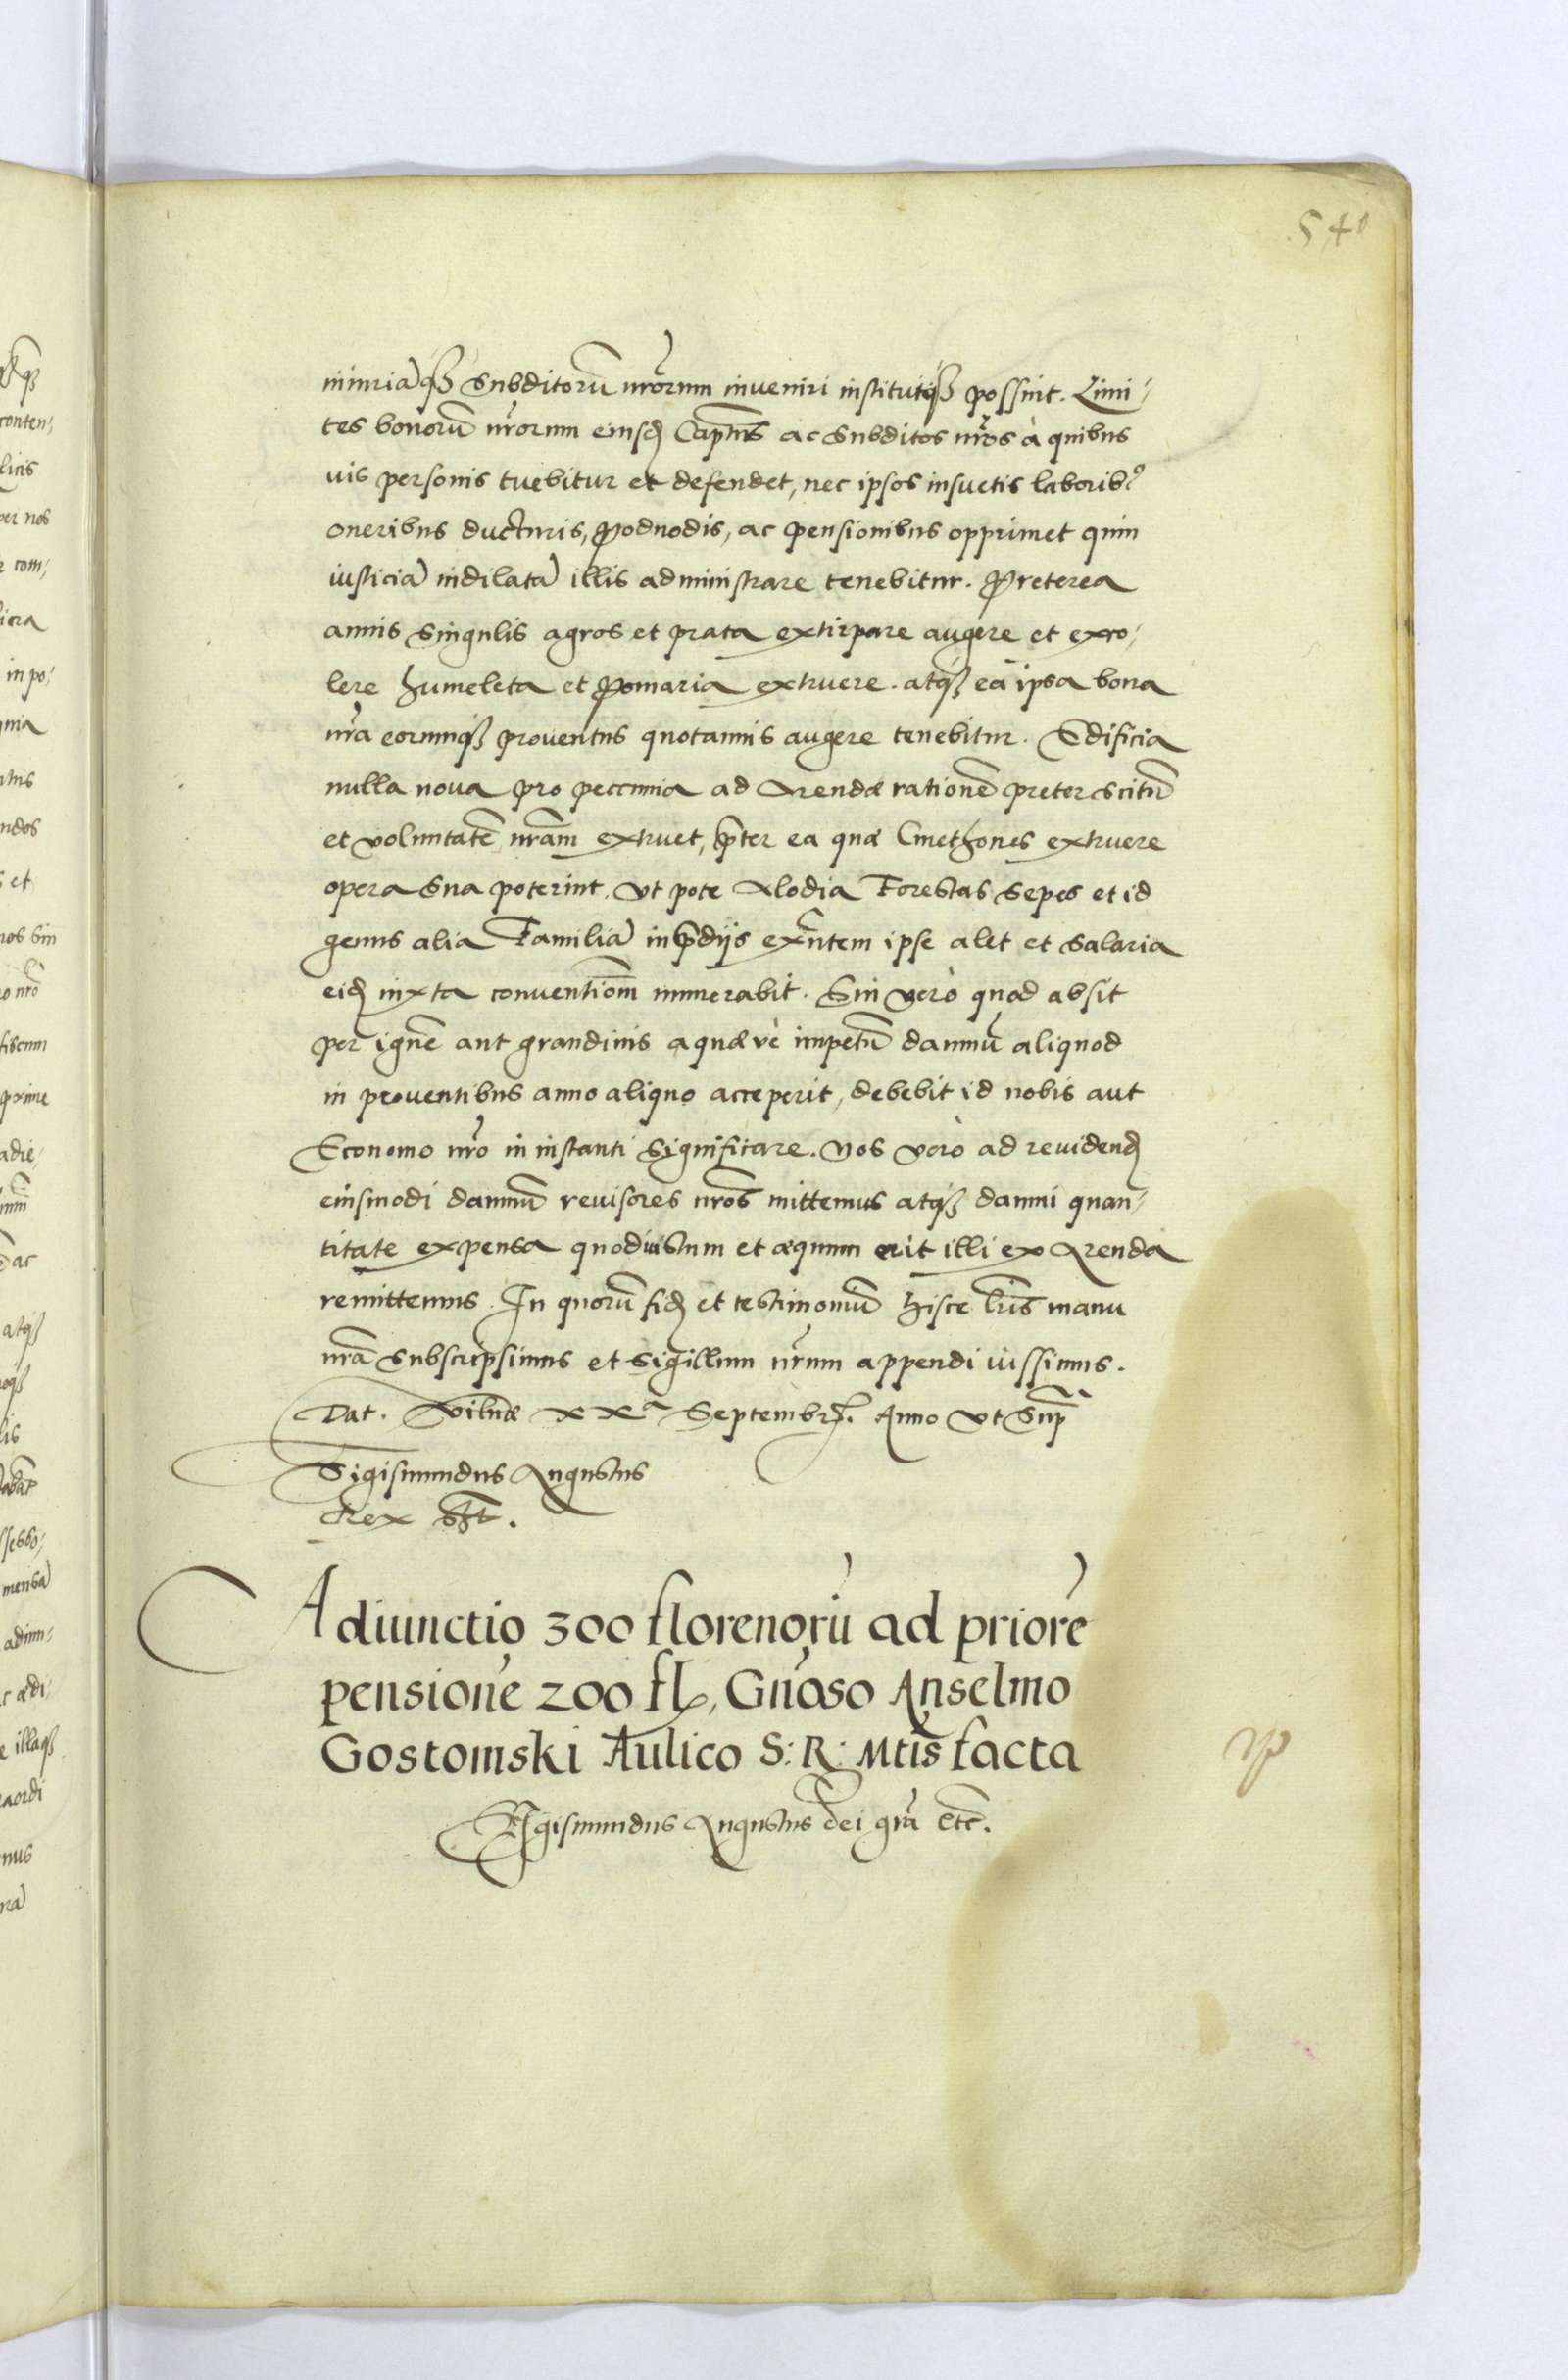 540
iniuriaq₃ Subditorũ nr̃orum inveniri institutiq₃ possint. Limi-
tes bonorũ nr̃orum eiusd Capt̃ns ac Subditos nr̃os à quibus
uis personis tuebitur et defendet, nec ipsos insuetis laborib⁹
oneribus ducturis, Podvodis, ac pensionibus opprimet quin
iusticiã indilatã illis administrare tenebitur. Preterea
annis Singulis agros et prata extirpare augere et exco-
lere humeleta et Pomaria extruere. atq₃ eã ipsa bona
nr̃a eorumq₃ proventus quotannis augere tenebitur. Edificia
nulla nova pro pecunia ad Arendæ rationẽ preter scitũ
et voluntatẽ nr̃am extruet, p̃ter ea quæ Cmethones extruere
opera Sua poterint. Vt pote Alodia Forestas Sepes et id
genus alia Familiã in p̃dijs exñtem ipse alet et Salaria
eid iuxta conventiom̃ numerabit. Sin verò quod absit
per ignẽ aut grandinis aquæ vè impetũ damnũ aliquod
in proventibus anno aliquo acceperit, debebit id nobis aut
Economo nr̃o in instanti Significare. Nos verò ad revidend
eiusmodi damnũ revisores nr̃os mittemus atq₃ damni quan-
titate expensa quod iustum et æquum erit illi ex Arenda
remittemus. In quorũ fid et testimoniũ hisce lr̃is manu
nr̃a Subscripsimus et Sigillum nr̃um appendi iussimus.
Dat. Vilnæ XXᵃ Septembr. Anno Vt Sup̃
Sigismundus Augustus
Rex sst.
Adiunctio 300 florenorũ ad priorẽ
pensionẽ 200 fl, Gñoso Anselmo
Gostomski Aulico S: R: Mtis facta
Sigismundus Augustus Dei gr̃a etc̃.